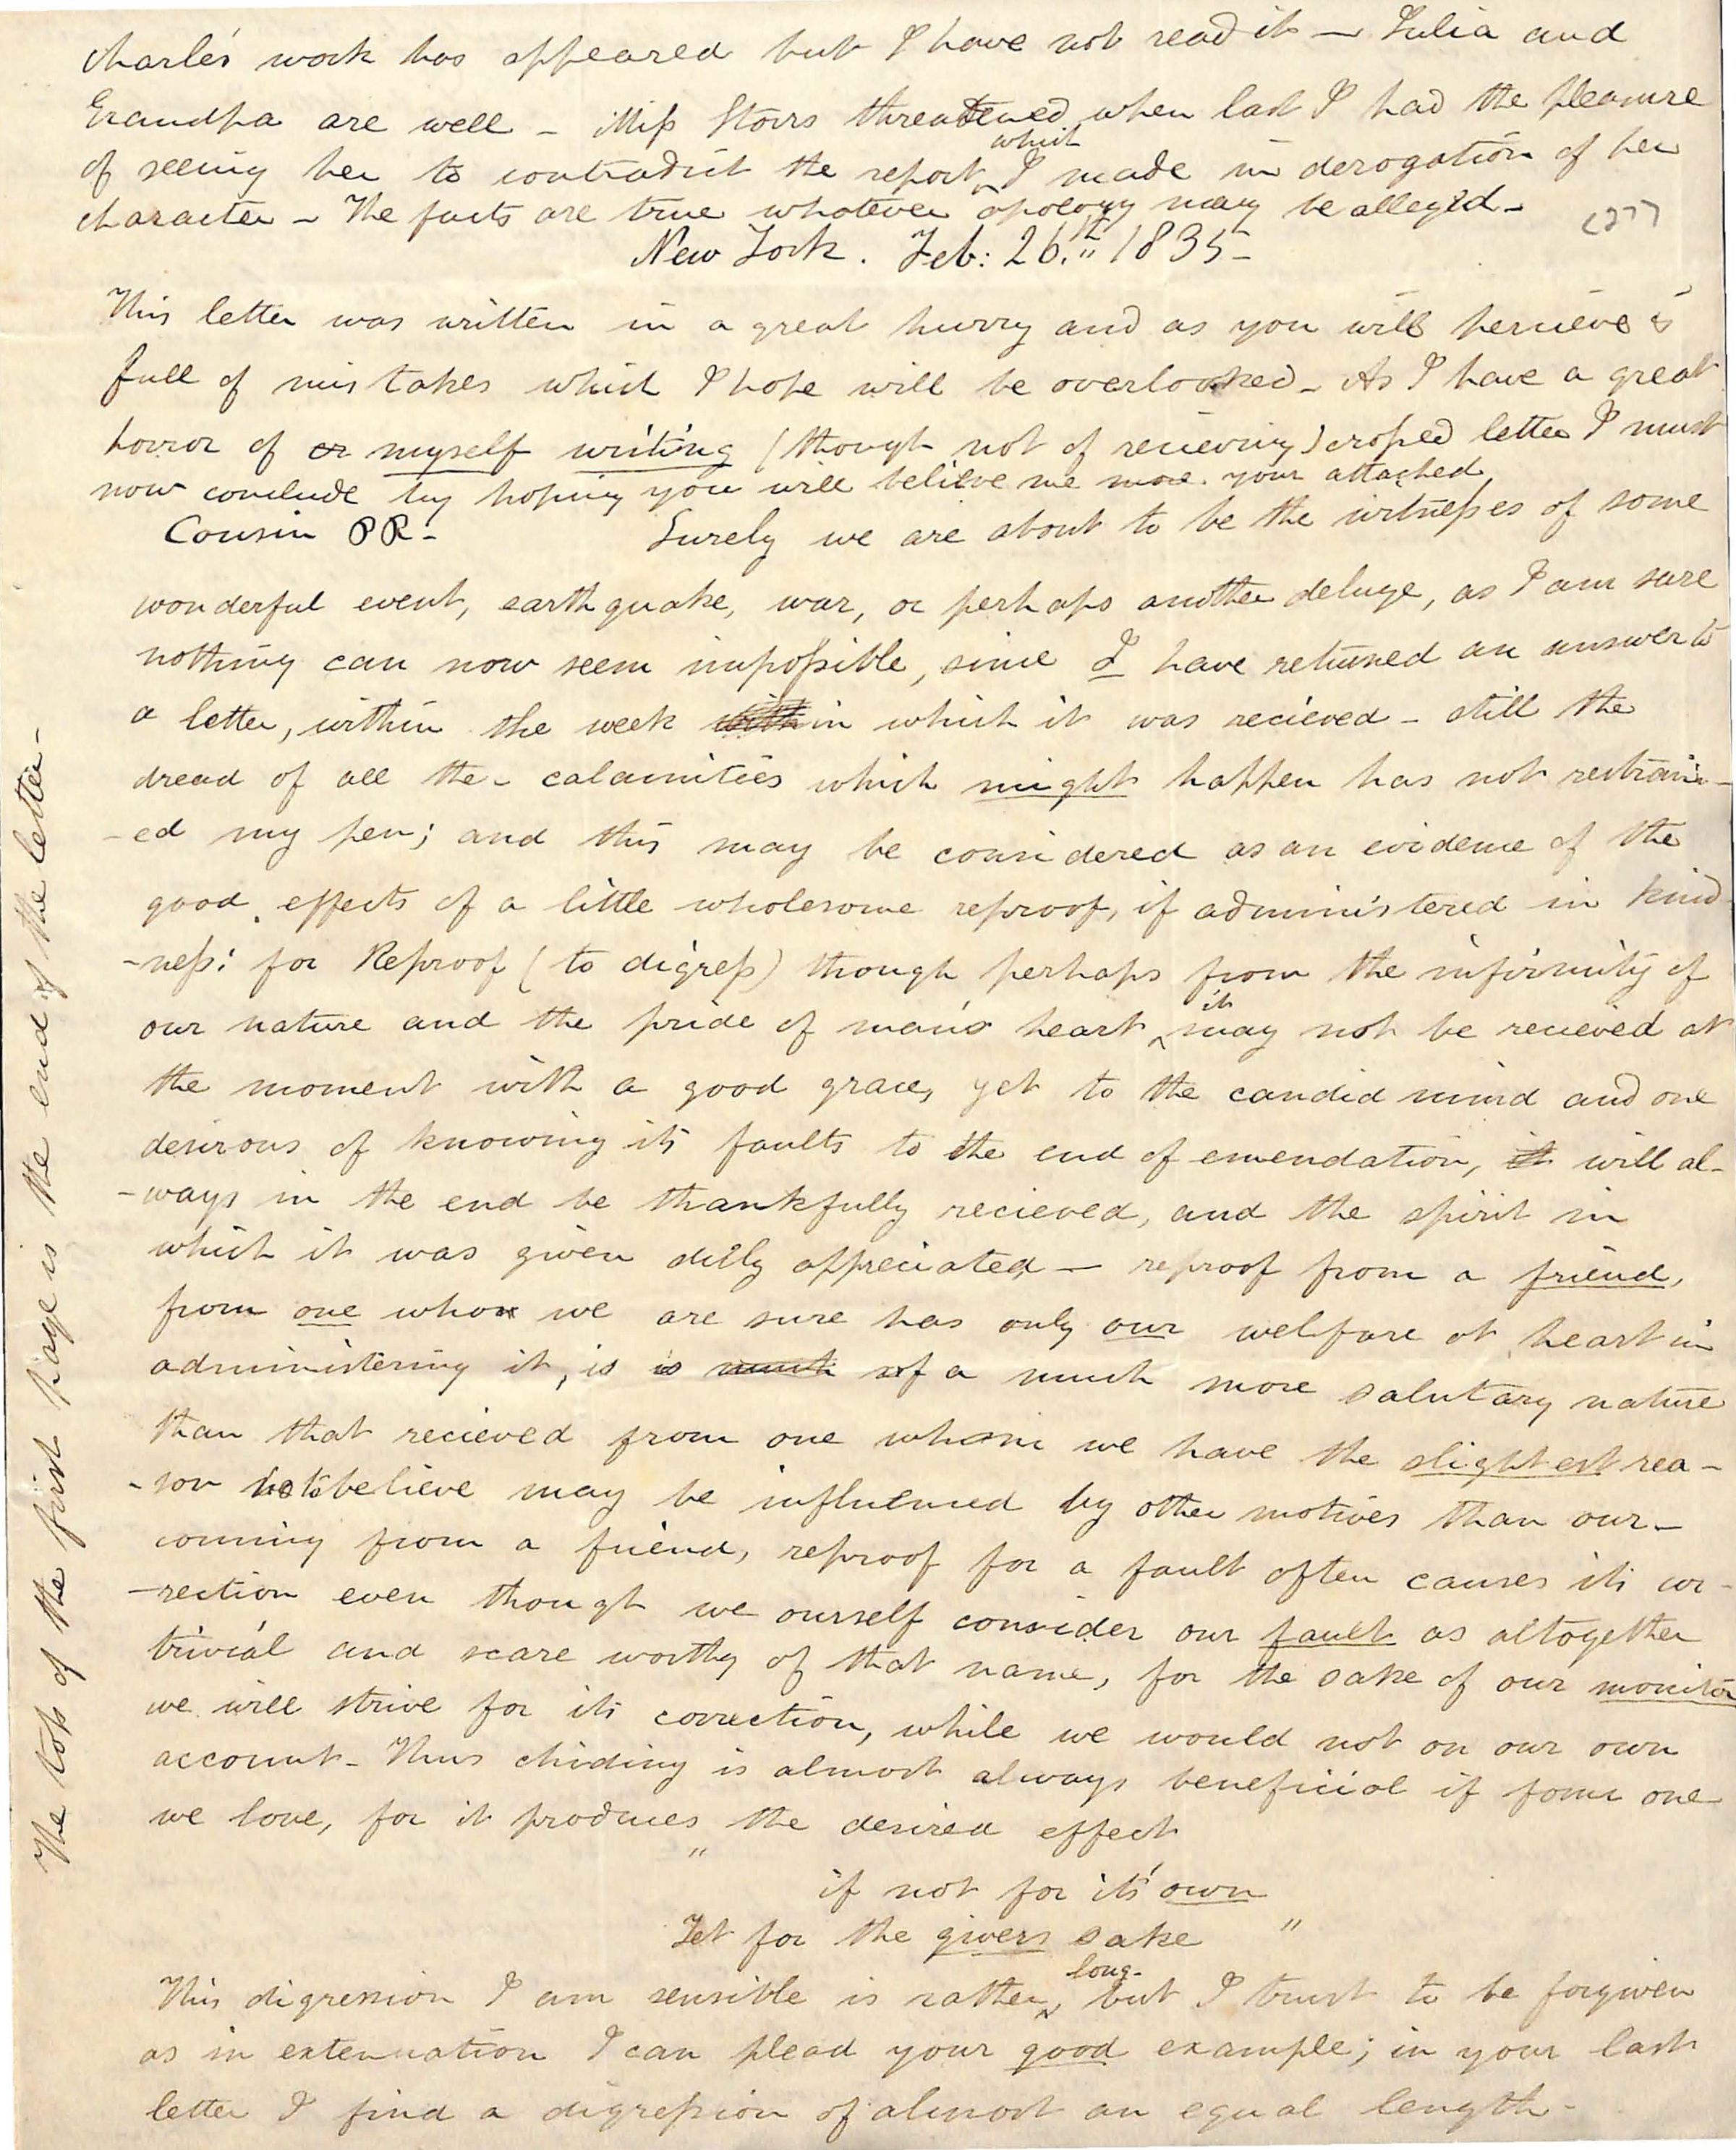 Charle's work has appeared but I have not read it — Julia and
Grandpa are well – Miss Storrs threatened when last I had the pleasure
of seeing her to contradict the report which I made in derogation of her
character – The facts are true whatever apology may be alleged –
(277
New York. Feb: 26.th 1835 –
This letter was written in a great hurry and as you will percieve is
full of mistakes which I hope will be overlooked – As I have a great
horror of or myself writing (though not of recieving) crosped letter I must
now conclude by hoping you will believe me more. your attached
Cousin PR –
Surely we are about to be the witnesses of some
wonderful event, earthquake, war, or perhaps another deluge, as I am sure
nothing can now seem impossible, since I have returned an answer to
a letter, within the week within which it was recieved – still the
dread of all the – calamities which might happen has not restrain–
–ed my pen; and this may be considered as an evidence of the
good effects of a little wholesome reproof, if administered in kind
–ness: for Reproof (to digress) though perhaps from the infirmity of
our nature and the pride of man's heart, it may not be recieved at
the moment with a good grace, yet to the candid mind and one
desirous of knowing its faults to the end of emendation, it will al–
–ways in the end be thankfully recieved, and the spirit in
which it was given duly appreciated – reproof from a friend,
from one whom we are sure has only our welfare at heart in
administering it, is is much of a much more salutary nature
than that recieved from one whom we have the slightest rea–
–son to believe may be influenced by other motives than our –
coming from a friend, reproof for a fault often causes its cor–
–rection even though we ourself consider our fault as altogether
trivial and scare worthy of that name, for the sake of our monitor
we will strive for its correction, while we would not on our own
account – Thus chiding is almost always beneficial if fomr one
we love, for it produces the desired effect
" if not for it's own
Yet for the givers sake "
This digression I am sensible is rather long – but I trust to be forgiven
as in extenuation I can plead your good example; in your last
letter I find a digression of almost an equal length –
The top of the first page is the end of the letter –